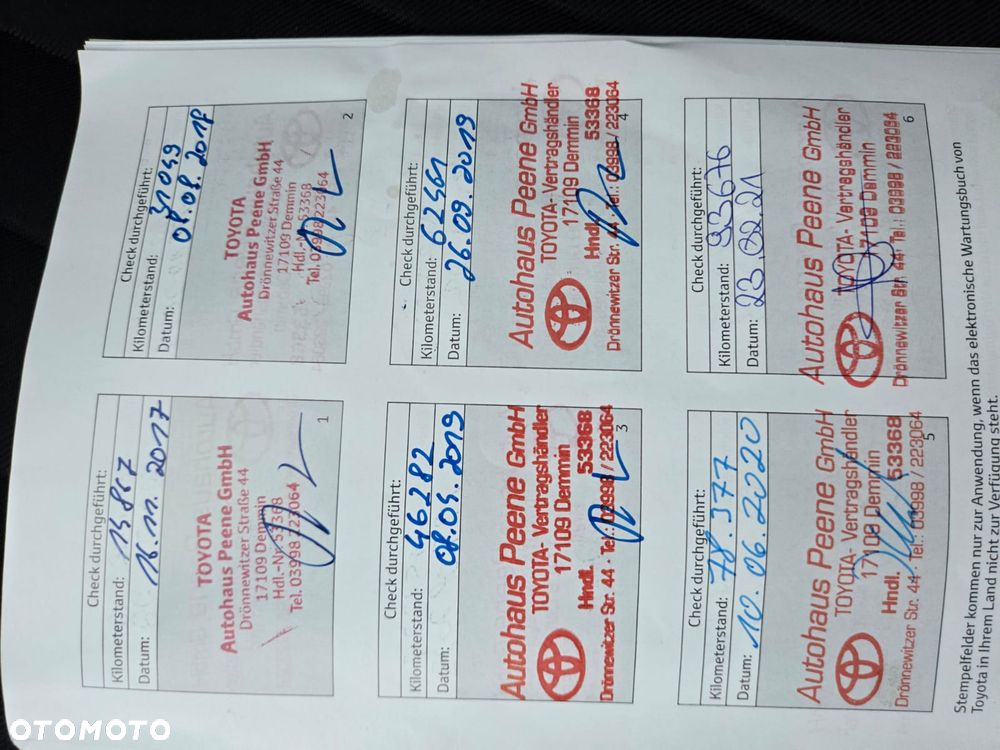 Check durchgeführt:
Kilometerstand: 15867
Datum: 16.11.2017
TOYOTA
Autohaus Peene GmbH
Drönnewitzer Straße 44
17109 Demmin
Hdl.-Nr. 53368
Tel. 03998 / 223064
1
Check durchgeführt:
Kilometerstand: 31049
Datum: 08.08.2018
TOYOTA
Autohaus Peene GmbH
Drönnewitzer Straße 44
17109 Demmin
Hdl.-Nr. 53368
Tel. 03998 / 223064
2
Check durchgeführt:
Kilometerstand: 46282
Datum: 08.05.2019
Autohaus Peene GmbH
TOYOTA- Vertragshändler
17109 Demmin
Hndl. 53368
Drönnewitzer Str. 44 - Tel.: 03998 / 223064
3
Check durchgeführt:
Kilometerstand: 62461
Datum: 26.09.2019
Autohaus Peene GmbH
TOYOTA- Vertragshändler
17109 Demmin
Hndl. 53368
Drönnewitzer Str. 44 - Tel.: 03998 / 223064
4
Check durchgeführt:
Kilometerstand: 78.377
Datum: 10.06.2020
Autohaus Peene GmbH
TOYOTA- Vertragshändler
17109 Demmin
Hndl. 53368
Drönnewitzer Str. 44 - Tel.: 03998 / 223064
5
Check durchgeführt:
Kilometerstand: 93676
Datum: 23.02.21
Autohaus Peene GmbH
TOYOTA- Vertragshändler
17109 Demmin
Drönnewitzer Str. 44 - Tel.: 03998 / 223064
6
Stempelfelder kommen nur zur Anwendung, wenn das elektronische Wartungsbuch von
Toyota in Ihrem Land nicht zur Verfügung steht.
OTOMOTO